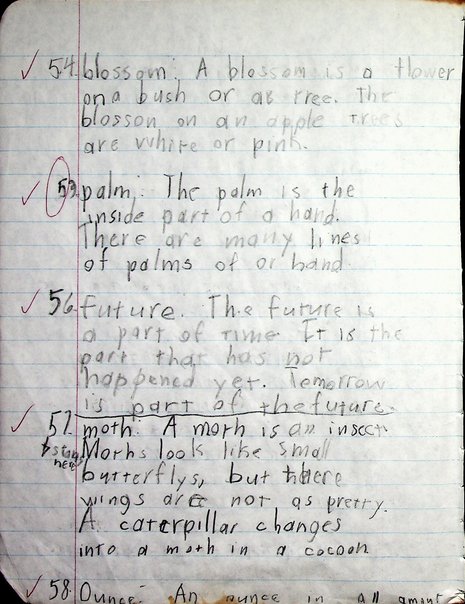 54. blossom: A blossom is a flower
on a bush or as tree. The
blosson on an apple trees
are white or pink.
59. palm: The palm is the
inside part of a hand.
There are many lines
of palms of or hand
56. future. The future is
a part of time It is the
part that has not
happened yet. Tomorrow
is part of the future.
57. moth: A moth is an insect
start here
Moths look like small
butterflys, but there
wings are not as pretty.
A caterpillar changes
into a moth in a cocoon
58. Ounce: An ounce in all amont